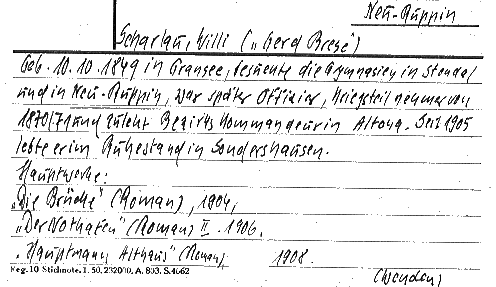 Neu-Ruppin
Scharlau, Willi („Gerd Brese“)
Geb. 10.10.1849 in Gransee, besuchte die Gymnasien in Stendal
und in Neu-Ruppin, war später Offizier, Kriegsteilnehmer von
1870/71 und zuletzt Bezirks Kommandeur in Altona. Seit 1905
lebte er im Ruhestand in Sondershausen.
Hauptwerke:
„Die Brücke“ (Roman), 1904,
„Der Nothafen“ (Roman) II. 1906.
„Hauptmann Althaus“ (Roman) 1908.
Reg. 10 Stichnote. I. 50. 232000. A. 803. S. 4662